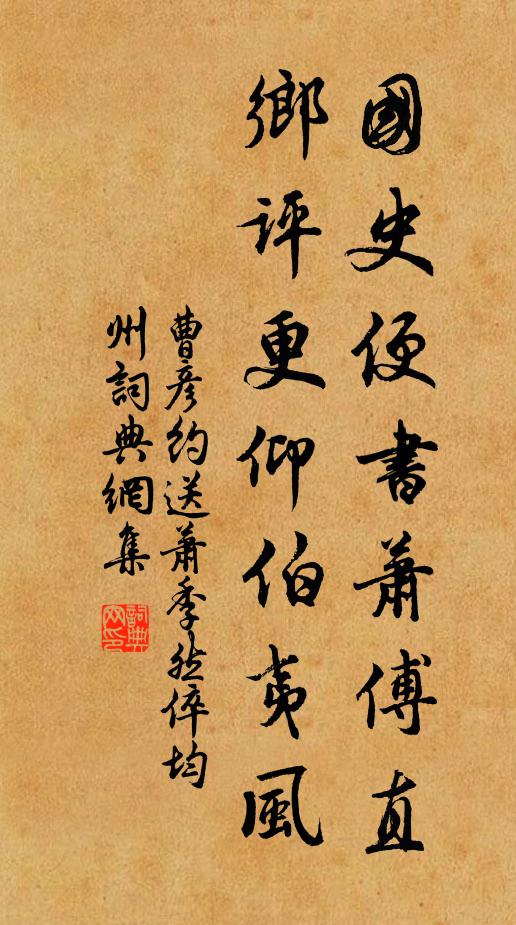 國史便書蕭傅直
鄉評更仰伯夷風
曹彥約送蕭季然倅均
州詞典網集
詞典
网印